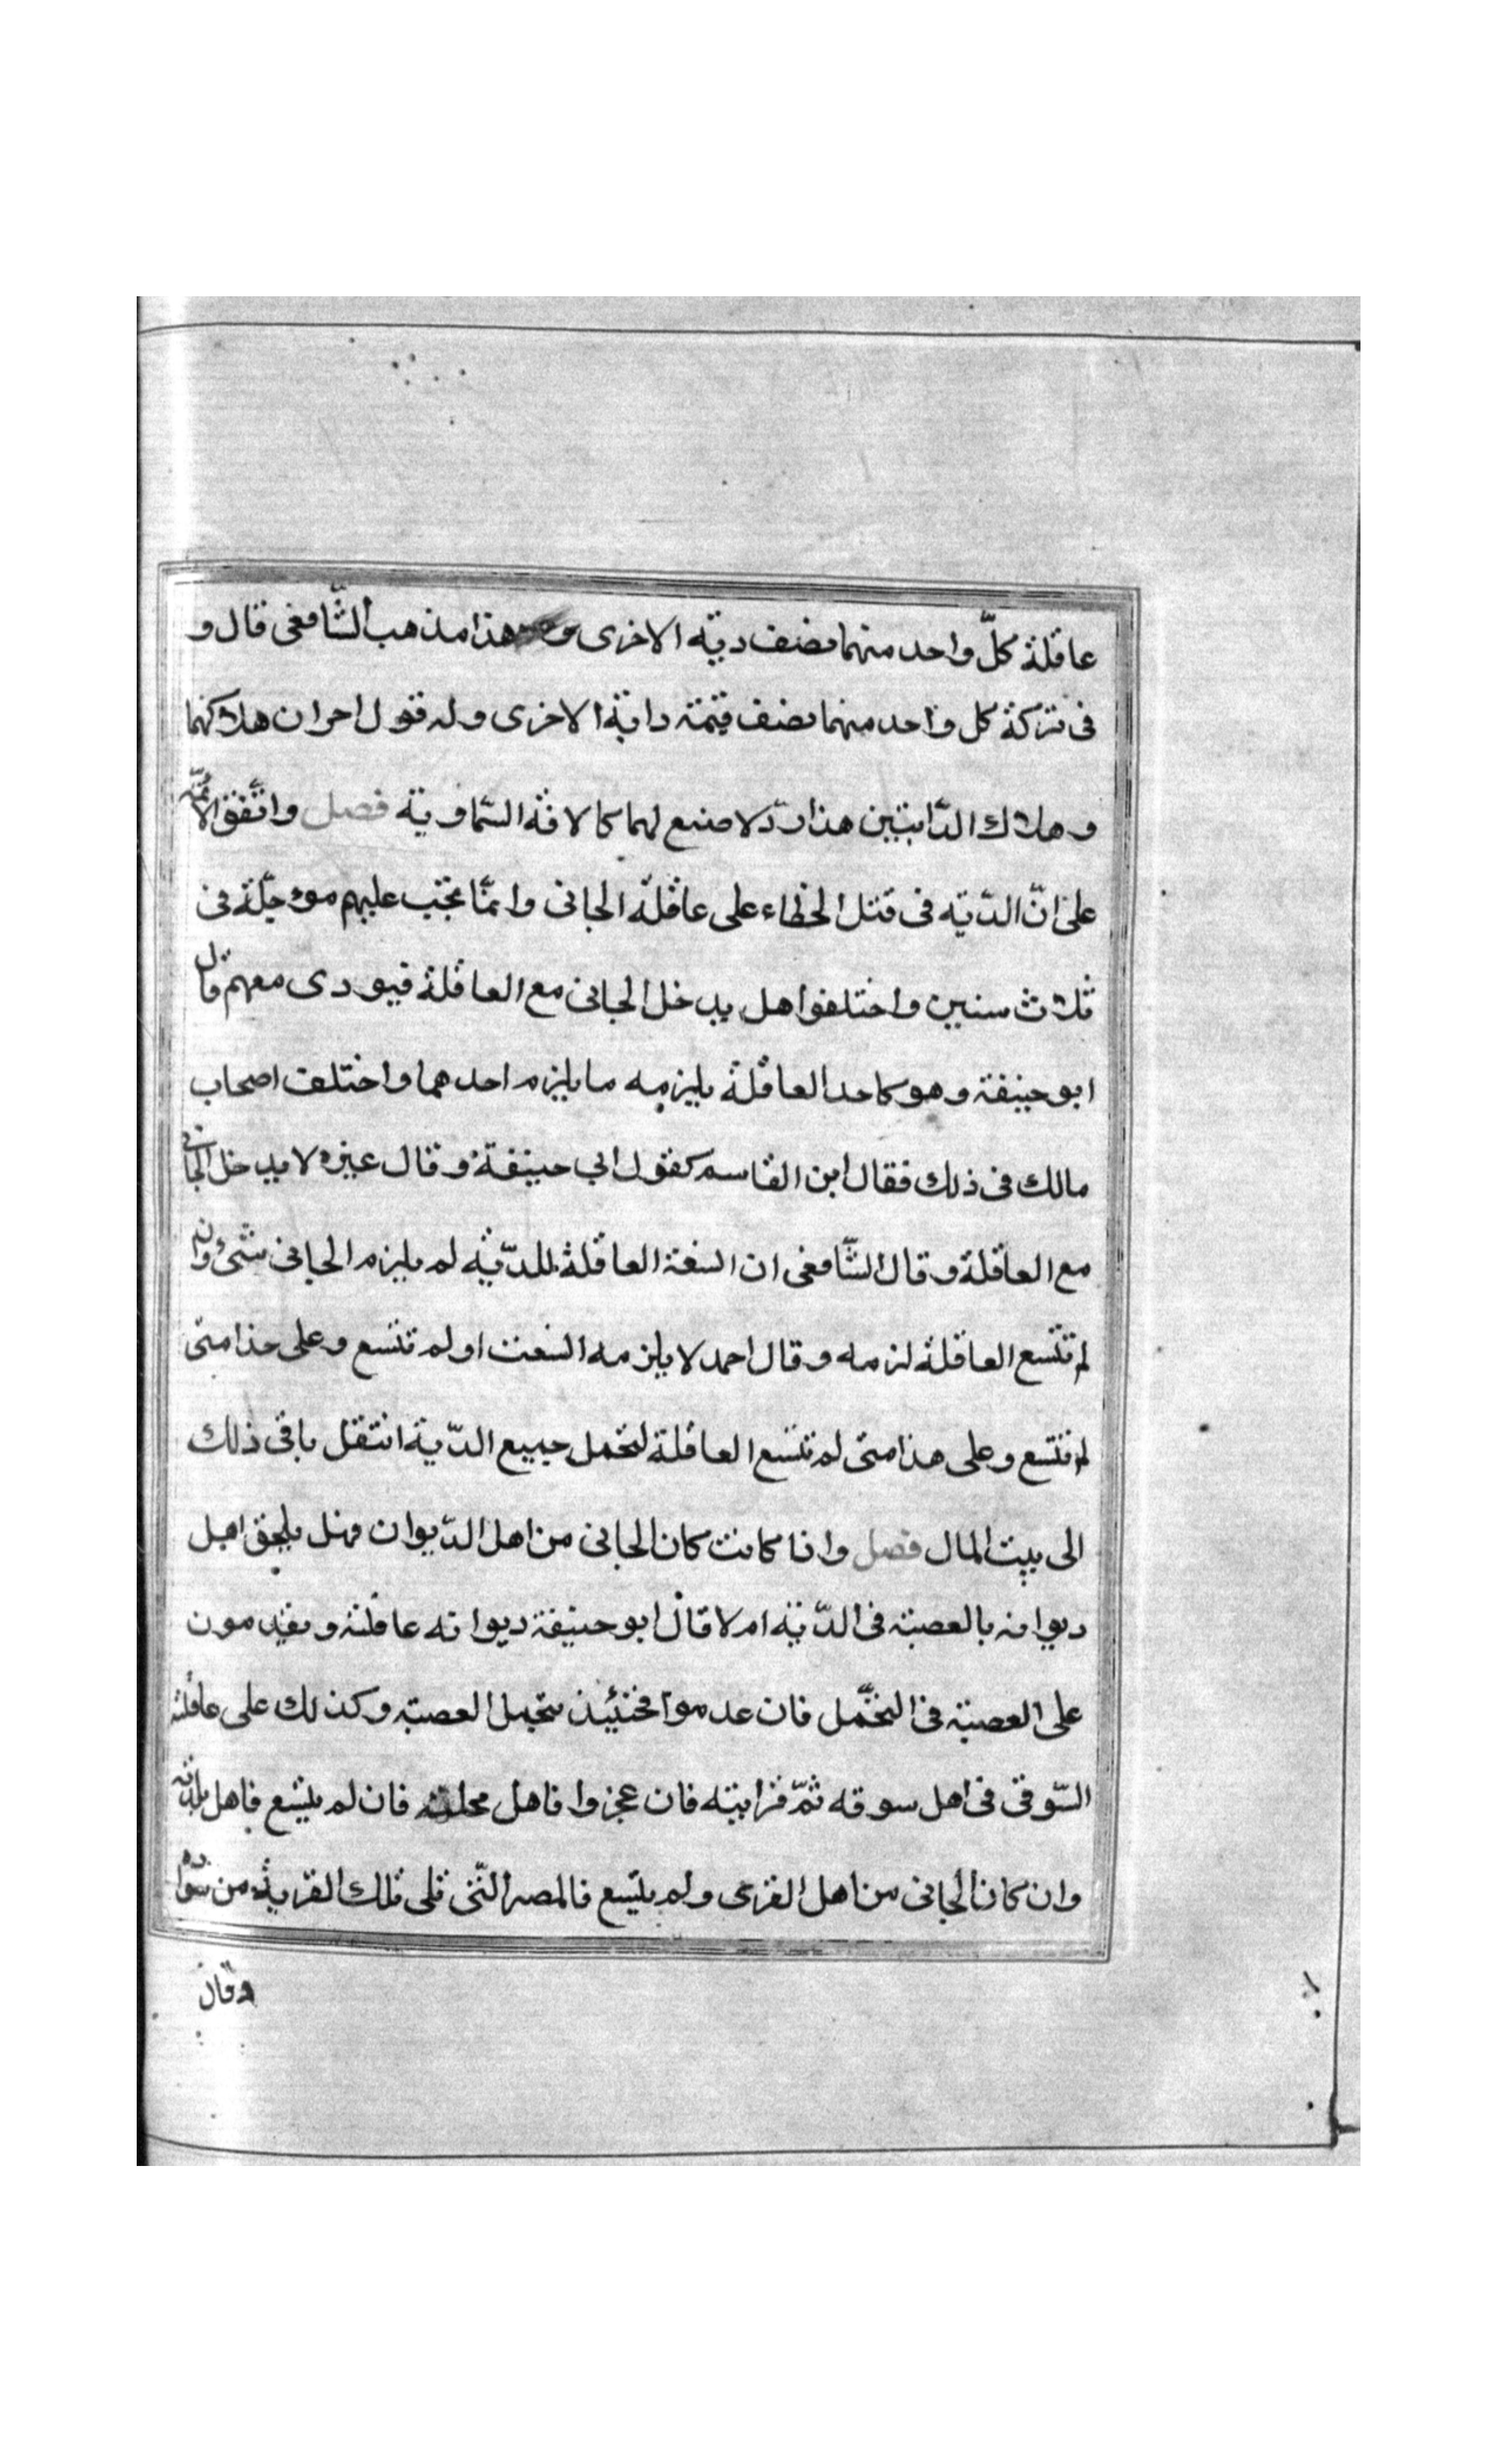 عاقلة كلّ واحد منهما نصف دية الاخرى وهذا مذهب الشّافعى قال و
فى تركة كل واحد منهما نصف قيمة دابة الاخرى وله قول اخر ان هلاكهما
وهلاك الدّابتين هذا لا صنع لهما كالافة السّماوية فصل واتّفق الائمّة
على انّ الدّية فى قتل الخطاء على عاقلة الجانى وانمّا تجب عليهم موءجّلة فى
ثلاث سنين واختلفوا هل يدخل الجانى مع العاقلة فيودى معهم قال
ابو حنيفة وهو كاحد العاقلة يلزمه ما يلزم احدهما واختلف اصحاب
مالك فى ذلك فقال ابن القاسم كقول ابي حنيفة وقال غيره لا يدخل الجانى
مع العاقلة وقال الشّافعى ان اتسعت العاقلة للدّية لم يلزم الجانى شىء وان
لم تتسع العاقلة لزمه وقال احمد لا يلزمه اتسعت او لم تتسع وعلى هذا متى
لم تتسع وعلى هذا متى لم تتسع العاقلة لتحمل جميع الدّية انتقل باقى ذلك
الى بيت المال فصل واذا كانت كان الجانى من اهل الدّيوان فهل يلحق اهل
ديوانه بالعصبة فى الدّية ام لا قال ابو حنيفة ديوانه عاقلته ويقدمون
على العصبة فى التحّمل فان عدموا فحنيئذ تتحمل العصبة وكذلك على عاقلته
السّوقى فى اهل سوقه ثمّ قرابته فان عجزوا فاهل محلته فان لم يتسع فاهل بلدته
وان كان الجانى من اهل القرى ولم يتسع فالمصر التّى تلى تلك القرية من سواده
وقال